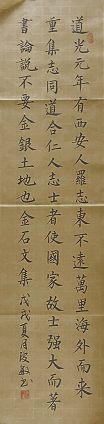 道光元年有西安人羅志東不遠萬里海外而來
重集志同道合仁人志士者使國家故士強大而著
書論說不要金銀土地也金石文集戊戌夏月政敏書